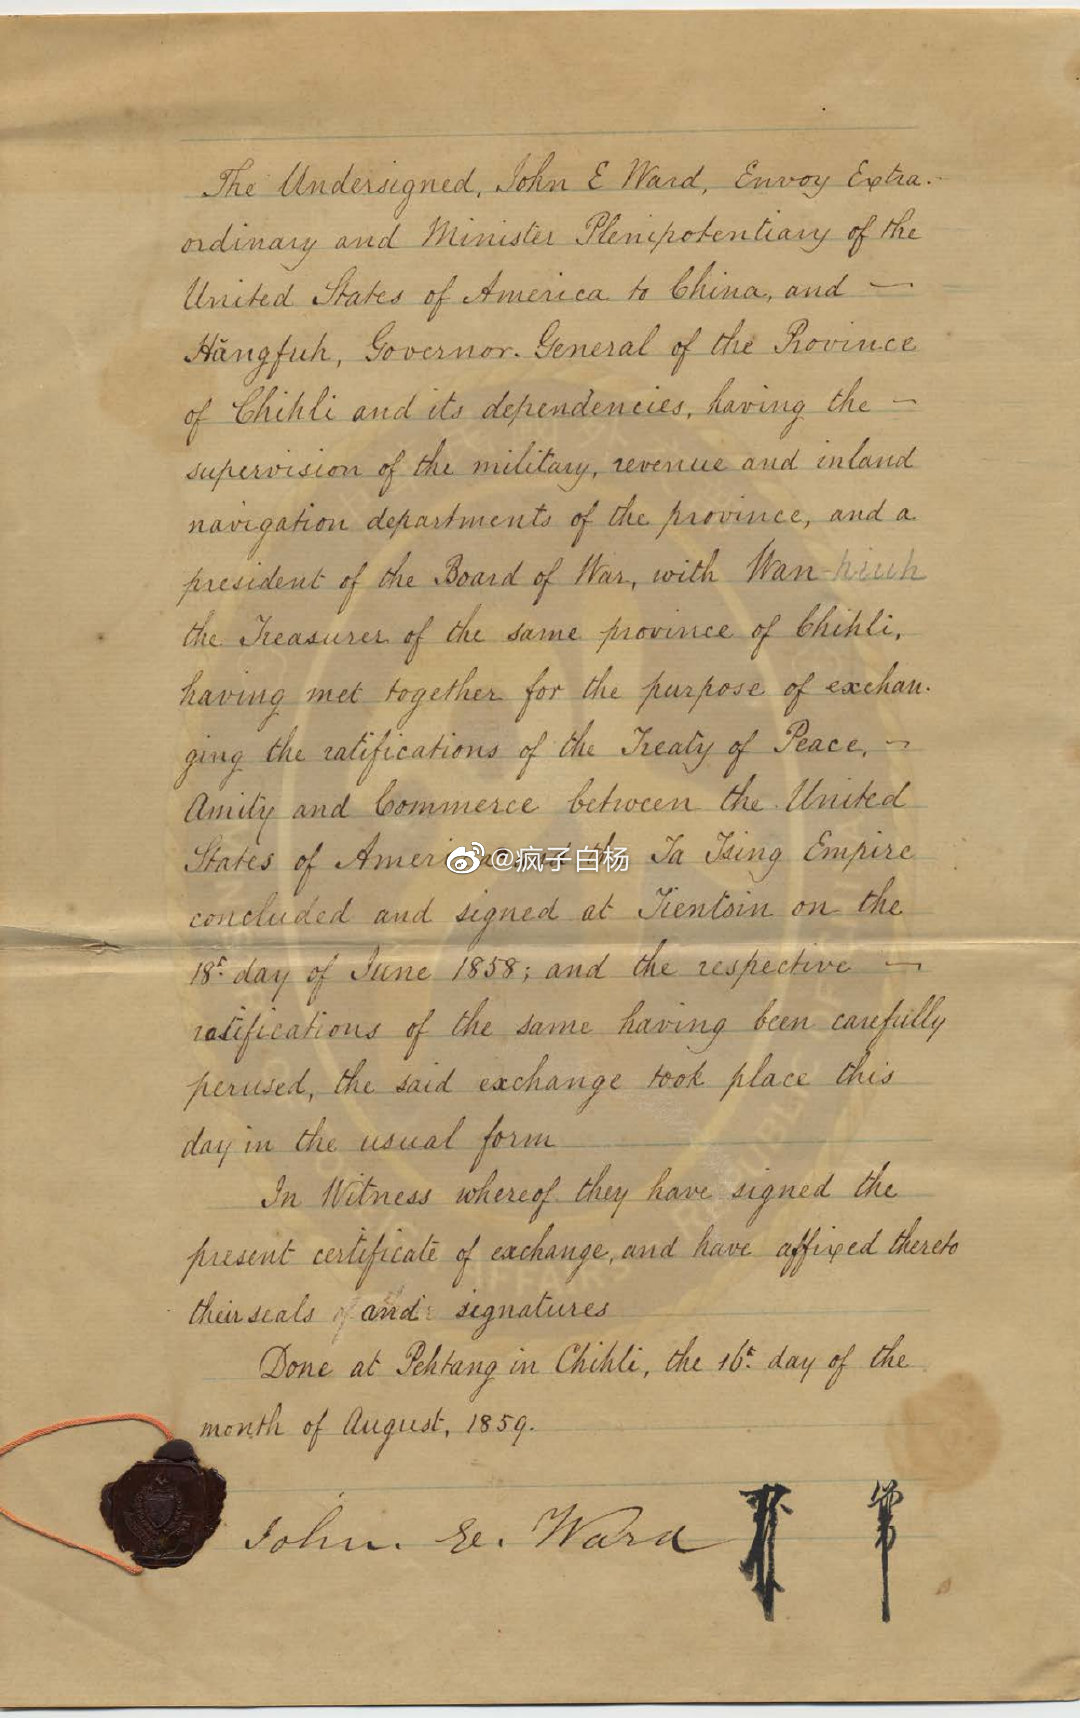 The Undersigned, John E Ward, Envoy Extra-
ordinary and Minister Plenipotentiary of the
United States of America to China, and —
Hăngfuh, Governor-General of the Province
of Chihli and its dependencies, having the —
supervision of the military, revenue and inland
navigation departments of the province, and a
president of the Board of War, with Wan-hiuh
the Treasurer of the same province of Chihli,
having met together for the purpose of exchan-
ging the ratifications of the Treaty of Peace, —
Amity and Commerce between the United
States of America and the Ta Tsing Empire
@疯子白杨
concluded and signed at Tientsin on the
18th day of June 1858; and the respective —
ratifications of the same having been carefully
perused, the said exchange took place this
day in the usual form
In Witness whereof they have signed the
present certificate of exchange, and have affixed thereto
their seals and signatures
Done at Pehtang in Chihli, the 16th day of the
month of August, 1859.
John. E. Ward